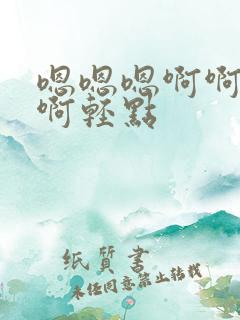 嗯嗯嗯啊啊
啊轻點
纸质书
未经同意禁止转载